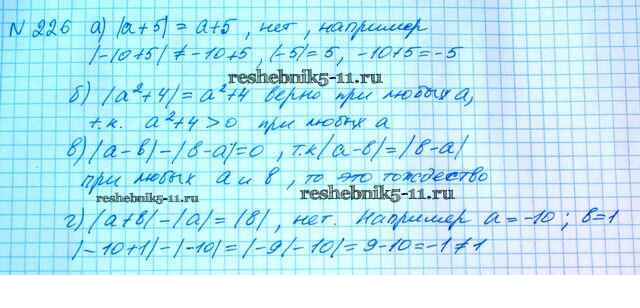 N 226 а) |a+5| = a+5, нет, например
|-10+5| ≠ -10+5, |-5|=5, -10+5=-5
reshebnik5-11.ru
б) |a²+4| = a²+4 верно при любых a,
т.к. a²+4>0 при любых a
в) |a-b|-|b-a|=0, т.к |a-b|=|b-a|
при любых a и b, то это тождество
reshebnik5-11.ru
reshebnik5-11.ru
г) |a+b|-|a|=|b|, нет. Например a=-10; b=1
|-10+1|-|-10|=|-9|-10|=9-10=-1≠1